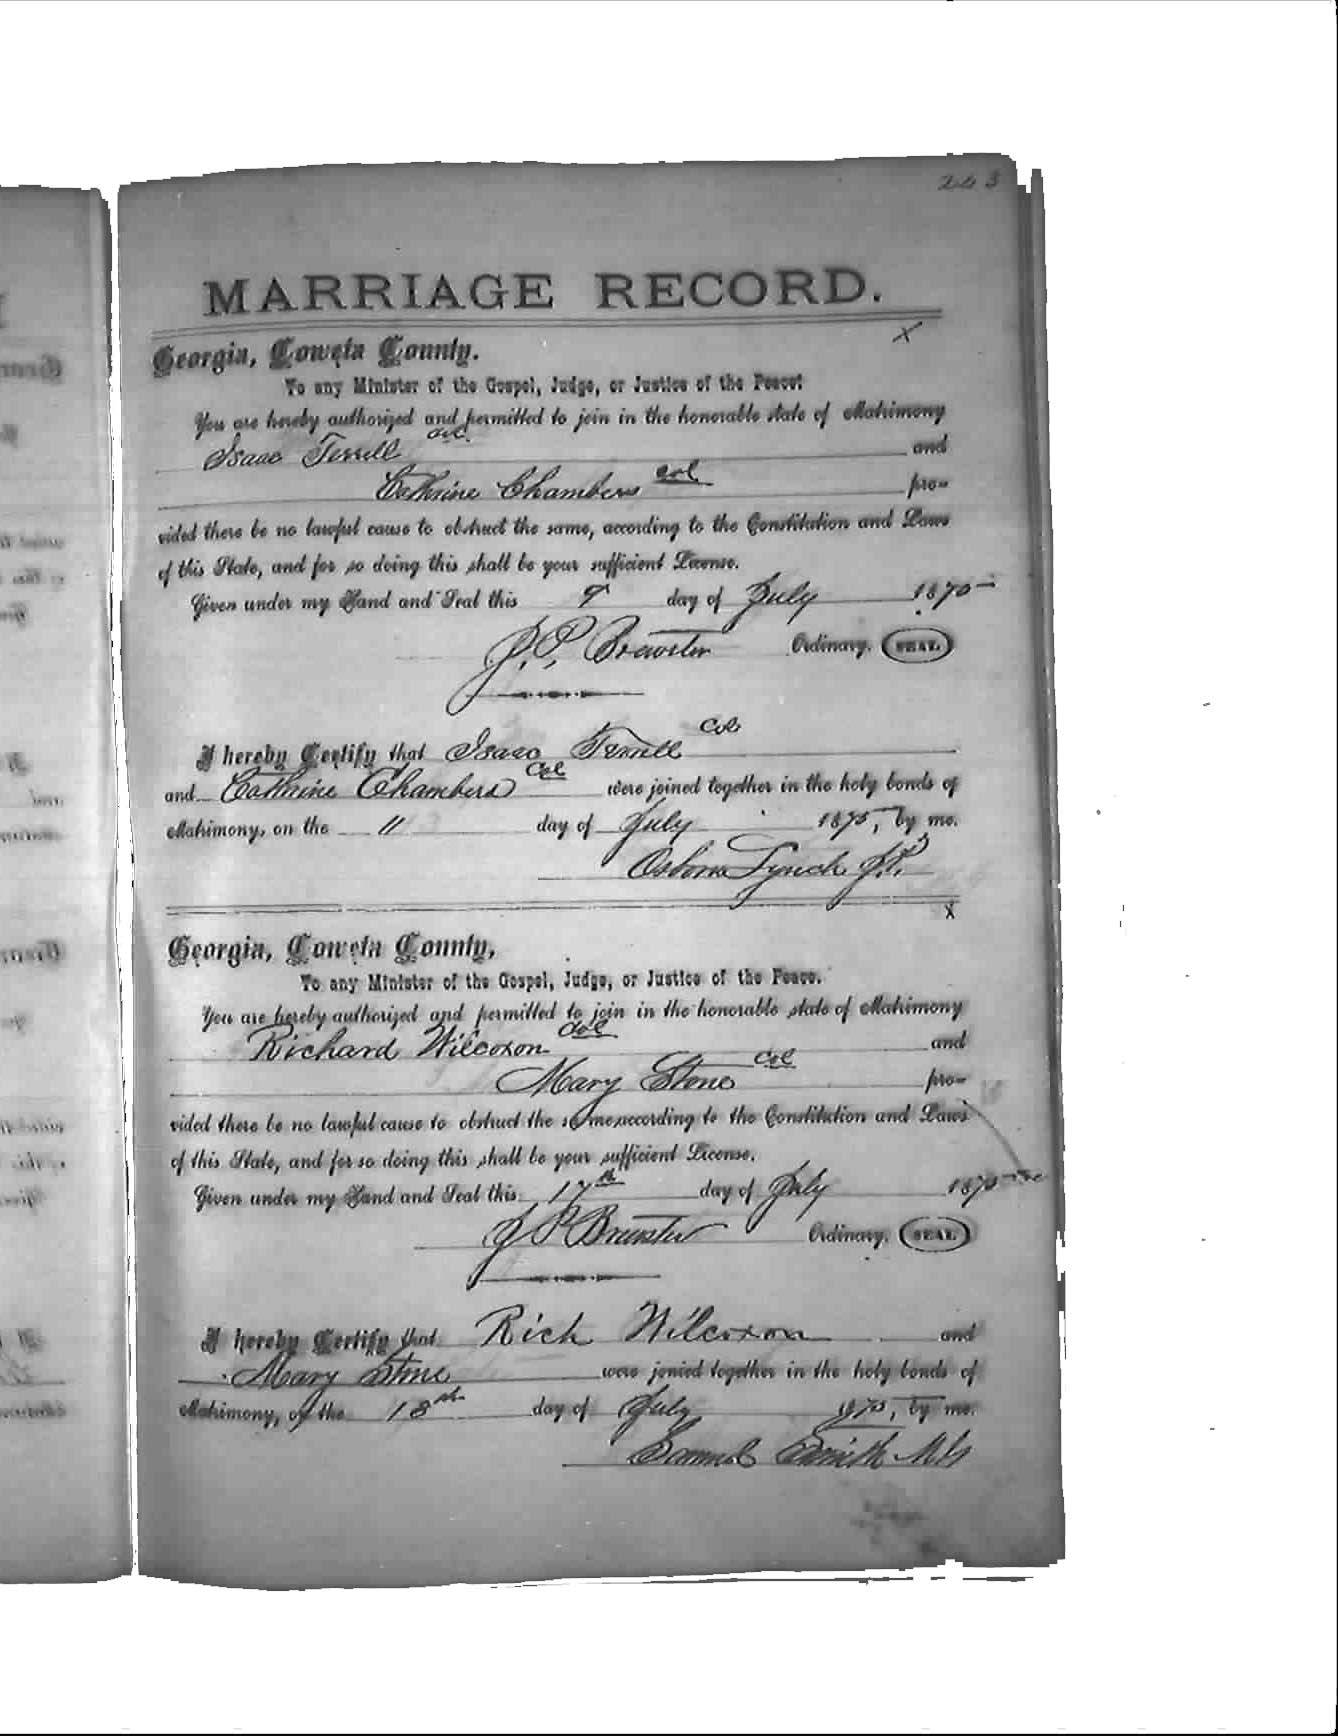 243
MARRIAGE RECORD.
x
Georgia, Coweta County.
To any Minister of the Gospel, Judge, or Justice of the Peace:
You are hereby authorized and permitted to join in the honorable state of Matrimony
Isaac Terrell col. and
Cathrine Chambers col pro-
vided there be no lawful cause to obstruct the same, according to the Constitution and Laws
of this State, and for so doing this shall be your sufficient License.
Given under my Hand and Seal this 9 day of July 1875
J. P. Brewster Ordinary. SEAL.
I hereby Certify that Isaac Terrell Col
and Cathrine Chambers Col were joined together in the holy bonds of
Matrimony, on the 11 day of July 1875, by me.
Osborn Lynch J.P.
x
Georgia, Coweta County,
To any Minister of the Gospel, Judge, or Justice of the Peace.
You are hereby authorized and permitted to join in the honorable state of Matrimony
Richard Wilcoxon Col and
Mary Stone Col pro-
vided there be no lawful cause to obstruct the same, according to the Constitution and Laws
of this State, and for so doing this shall be your sufficient License.
Given under my Hand and Seal this 17th day of July 1875
J P Brewster Ordinary. SEAL.
I hereby Certify that Rich Wilcoxon and
Mary Stone were jonied together in the holy bonds of
Matrimony, on the 18th day of July 1875, by me.
Samuel Smith M G